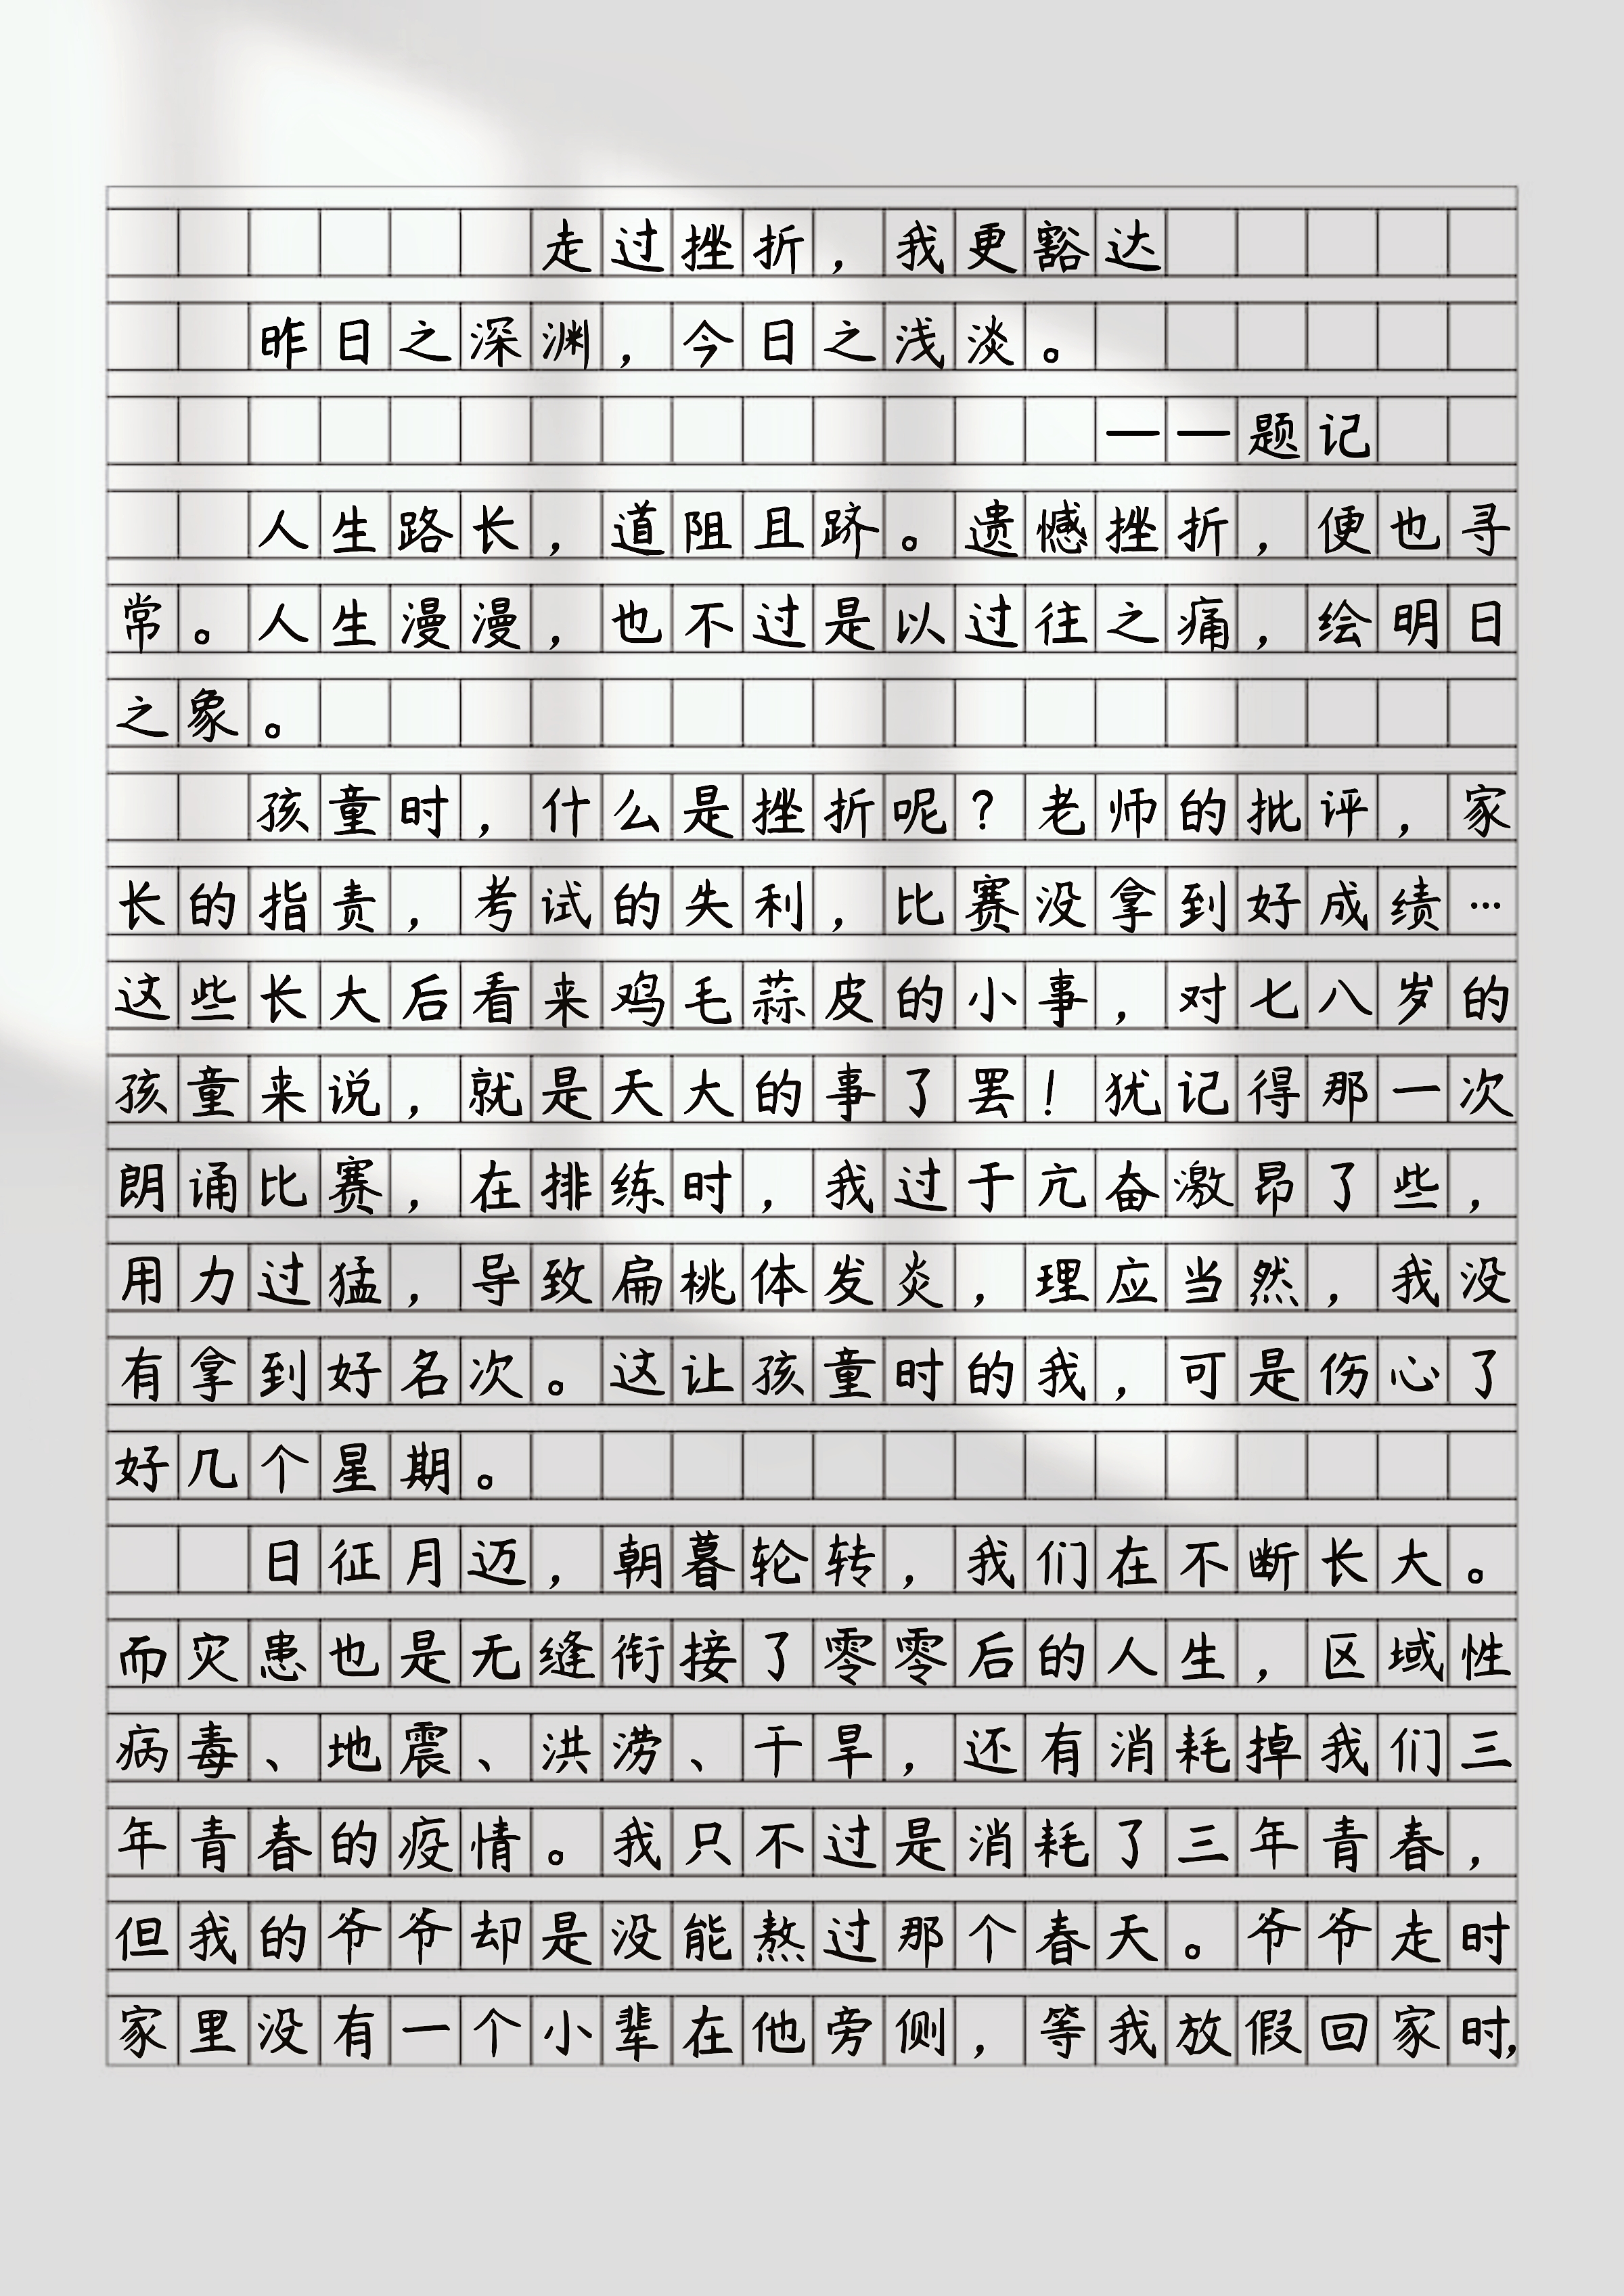 走过挫折，我更豁达
昨日之深渊，今日之浅淡。
——题记
人生路长，道阻且跻。遗憾挫折，便也寻
常。人生漫漫，也不过是以过往之痛，绘明日
之象。
孩童时，什么是挫折呢？老师的批评，家
长的指责，考试的失利，比赛没拿到好成绩…
这些长大后看来鸡毛蒜皮的小事，对七八岁的
孩童来说，就是天大的事了罢！犹记得那一次
朗诵比赛，在排练时，我过于亢奋激昂了些，
用力过猛，导致扁桃体发炎，理应当然，我没
有拿到好名次。这让孩童时的我，可是伤心了
好几个星期。
日征月迈，朝暮轮转，我们在不断长大。
而灾患也是无缝衔接了零零后的人生，区域性
病毒、地震、洪涝、干旱，还有消耗掉我们三
年青春的疫情。我只不过是消耗了三年青春，
但我的爷爷却是没能熬过那个春天。爷爷走时
家里没有一个小辈在他旁侧，等我放假回家时，